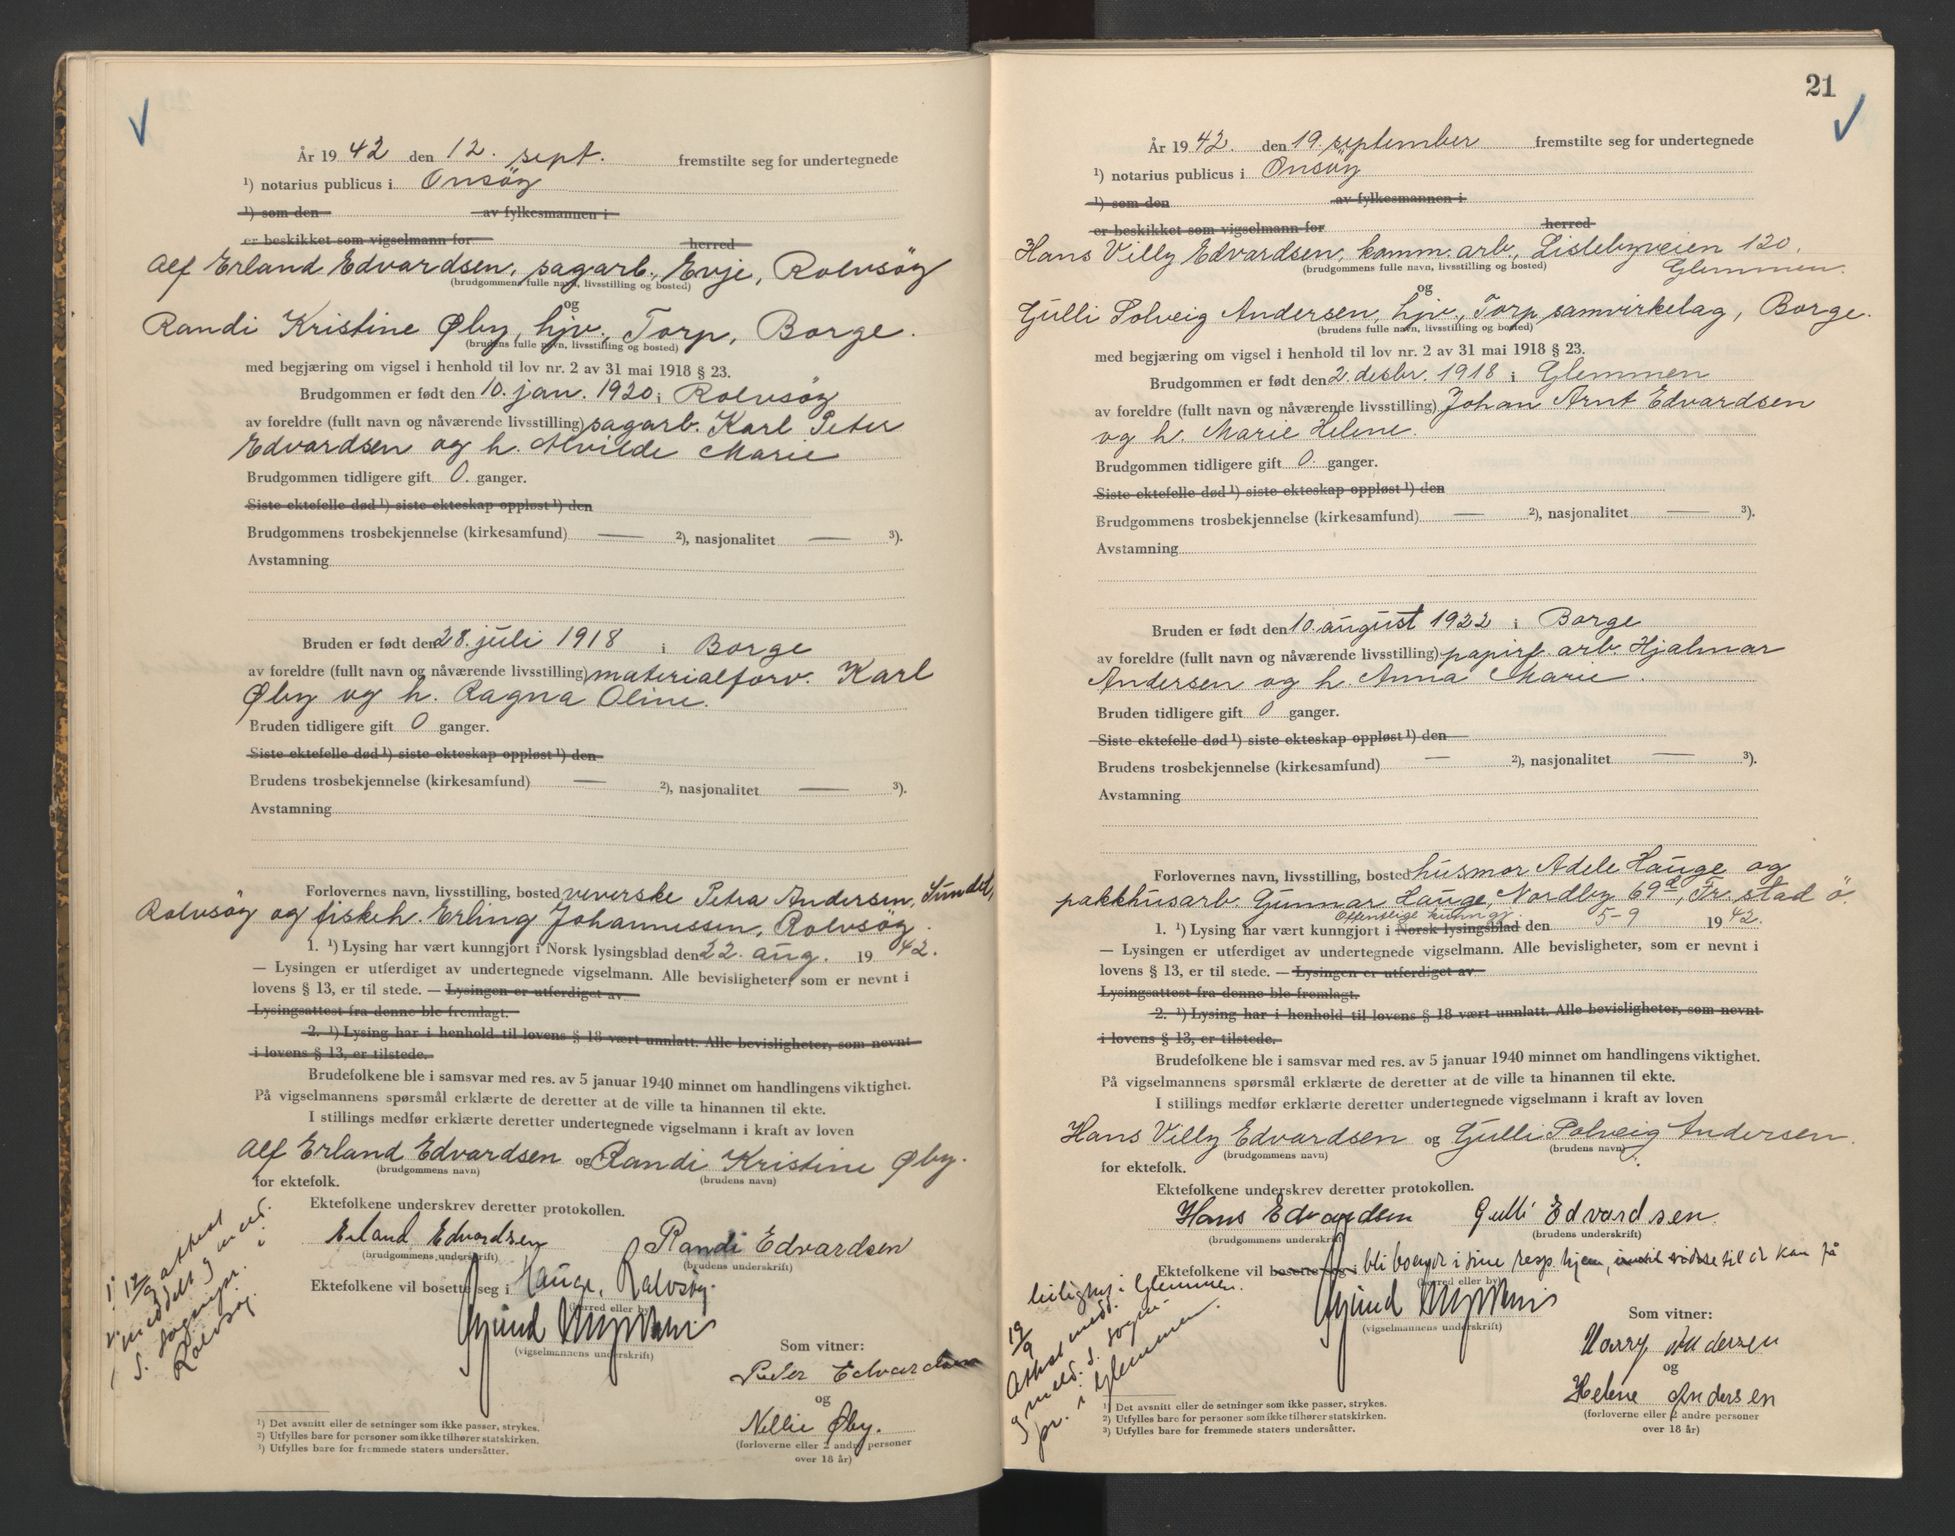 År 1942 den 12. sept. fremstilte seg for undertegnede
¹) notarius publicus i Onsöy
¹) som den av fylkesmannen i
er beskikket som vigselmann for herred
Alf Erland Edvardsen, sagarb., Evje, Rolvsöy
(brudgommens fulle navn, livsstilling og bosted)
og
Randi Kristine Øby, hjv., Torp, Borge.
(brudens fulle navn, livsstilling og bosted)
med begjæring om vigsel i henhold til lov nr. 2 av 31 mai 1918 § 23.
Brudgommen er født den 10. jan. 1920 i Rolvsöy
av foreldre (fullt navn og nåværende livsstilling) sagarb. Karl Peter
Edvardsen og h. Alvilde Marie
Brudgommen tidligere gift 0. ganger.
Siste ektefelle død ¹) siste ekteskap oppløst ¹) den
Brudgommens trosbekjennelse (kirkesamfund) — ²), nasjonalitet — ³).
Avstamning
Bruden er født den 28. juli 1918 i Borge
av foreldre (fullt navn og nåværende livsstilling) materialforv. Karl
Øby og h. Ragna Oline.
Bruden tidligere gift 0 ganger.
Siste ektefelle død ¹) siste ekteskap oppløst ¹) den
Brudens trosbekjennelse (kirkesamfund) — ²), nasjonalitet — ³).
Avstamning
Forlovernes navn, livsstilling, bosted veverske Petra Andersen, Sundet,
Rolvsöy og fiskeh. Erling Johannessen, Rolvsöy.
1. ¹) Lysing har vært kunngjort i Norsk lysingsblad den 22. aug. 1942.
— Lysingen er utferdiget av undertegnede vigselmann. Alle bevisligheter, som er nevnt i
lovens § 13, er til stede. — Lysingen er utferdiget av
Lysingsattest fra denne ble fremlagt.
2. ¹) Lysing har i henhold til lovens § 18 vært unnlatt. Alle bevisligheter, som nevnt
i lovens § 13, er tilstede.
Brudefolkene ble i samsvar med res. av 5 januar 1940 minnet om handlingens viktighet.
På vigselmannens spørsmål erklærte de deretter at de ville ta hinannen til ekte.
I stillings medfør erklærte deretter undertegnede vigselmann i kraft av loven
Alf Erland Edvardsen og Randi Kristine Øby.
(brudgommens navn) (brudens navn)
for ektefolk.
Ektefolkene underskrev deretter protokollen.
Erland Edvardsen Randi Edvardsen
(brudgommens underskrift) (brudens underskrift)
Ektefolkene vil bosette seg i Hauge, Rolvsöy.
(herred eller by)
(vigselmannens underskrift)
Som vitner:
Peder Edvardsen
og
Nellie Øby.
(forloverne eller 2 andre personer
over 18 år)
12/9 attest
meddelt og meld.
s. sognepr. i
Rolvsöy.
¹) Det avsnitt eller de setninger som ikke passer, strykes.
²) Utfylles bare for personer som ikke tilhører statskirken.
³) Utfylles bare for fremmede staters undersåtter.
21
År 1942. den 19. september fremstilte seg for undertegnede
¹) notarius publicus i Onsöy
¹) som den av fylkesmannen i
er beskikket som vigselmann for herred
Hans Villy Edvardsen, komm. arb., Lislebyveien 120,
(brudgommens fulle navn, livsstilling og bosted) Glemmen.
og
Gulli Solveig Andersen, hjv., Torp samvirkelag, Borge.
(brudens fulle navn, livsstilling og bosted)
med begjæring om vigsel i henhold til lov nr. 2 av 31 mai 1918 § 23.
Brudgommen er født den 2. desbr. 1918 i Glemmen
av foreldre (fullt navn og nåværende livsstilling) Johan Arnt Edvardsen
og h. Marie Helene.
Brudgommen tidligere gift 0. ganger.
Siste ektefelle død ¹) siste ekteskap oppløst ¹) den
Brudgommens trosbekjennelse (kirkesamfund) — ²), nasjonalitet — ³).
Avstamning
Bruden er født den 10. august 1922 i Borge
av foreldre (fullt navn og nåværende livsstilling) papirf. arb. Hjalmar
Andersen og h. Anna Marie.
Bruden tidligere gift 0 ganger.
Siste ektefelle død ¹) siste ekteskap oppløst ¹) den
Brudens trosbekjennelse (kirkesamfund) — ²), nasjonalitet — ³).
Avstamning
Forlovernes navn, livsstilling, bosted husmor Adele Hauge og
pakkhusarb. Gunnar Hauge, Nordby 69 d, Fr.stad ö.
Offentlige kunngj.
1. ¹) Lysing har vært kunngjort i Norsk lysingsblad den 5-9 1942.
— Lysingen er utferdiget av undertegnede vigselmann. Alle bevisligheter, som er nevnt i
lovens § 13, er til stede. — Lysingen er utferdiget av
Lysingsattest fra denne ble fremlagt.
2. ¹) Lysing har i henhold til lovens § 18 vært unnlatt. Alle bevisligheter, som nevnt
i lovens § 13, er tilstede.
Brudefolkene ble i samsvar med res. av 5 januar 1940 minnet om handlingens viktighet.
På vigselmannens spørsmål erklærte de deretter at de ville ta hinannen til ekte.
I stillings medfør erklærte deretter undertegnede vigselmann i kraft av loven
Hans Villy Edvardsen og Gulli Solveig Andersen.
(brudgommens navn) (brudens navn)
for ektefolk.
Ektefolkene underskrev deretter protokollen.
Hans Edvardsen Gulli Edvardsen.
(brudgommens underskrift) (brudens underskrift)
Ektefolkene vil bosette seg i bli boende i sine resp. hjem, til de kan få
(herred eller by)
leilighet i Glemmen.
(vigselmannens underskrift)
Som vitner:
Harry Andersen
og
Helene Andersen
(forloverne eller 2 andre personer
over 18 år)
19/9
Attest medd.
og meld. s. sogne-
pr. i Glemmen.
¹) Det avsnitt eller de setninger som ikke passer, strykes.
²) Utfylles bare for personer som ikke tilhører statskirken.
³) Utfylles bare for fremmede staters undersåtter.